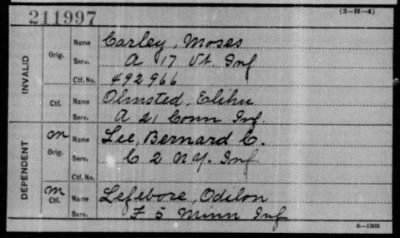 211997
(3-H-4)
INVALID
Orig.
Name Carley, Moses
Serv. A 17 Vt. Inf
Ctf. No. 492966
Ctf.
Name Olmsted, Elihu
Serv. A 21 Conn Inf.
DEPENDENT
m Orig.
Name Lee, Bernard C.
Serv. C 2 N.Y. Inf
Ctf. No.
m Ctf.
Name Lefebore, Odilon
Serv. F 5 Minn Inf